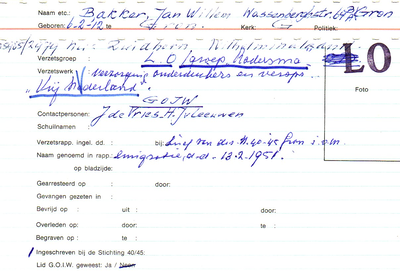 Naam etc.: Bakker, Jan Willem Wassenberghstr.
Geboren: 6-2-12 te: Gron. Kerk: G Politiek:
Zuidhorn, Wilhelminalaan
Verzetsgroep L.O. (groep Rodesma)
LO
Verzetswerk : verzorging onderduikers en versprs.
"Vrij Nederland".
GOJW
Foto
Contactpersonen: J de Vries. H. Vleeuwen
Schuilnaam :
Verzetsrapp. ingel. d.d. : bij: brief van d.s. 11.40-45 Gron
Naam genoemd in rapp.: emigratie, d.d. 13-2-1951.
op bladzijde:
Gearresteerd op : door:
Gevangen gezeten in :
Bevrijd op : uit : door:
Overleden op: door: te :
Begraven op : te :
Ingeschreven bij de Stichting 40/45:
Lid G.O.I.W. geweest: Ja / Neen